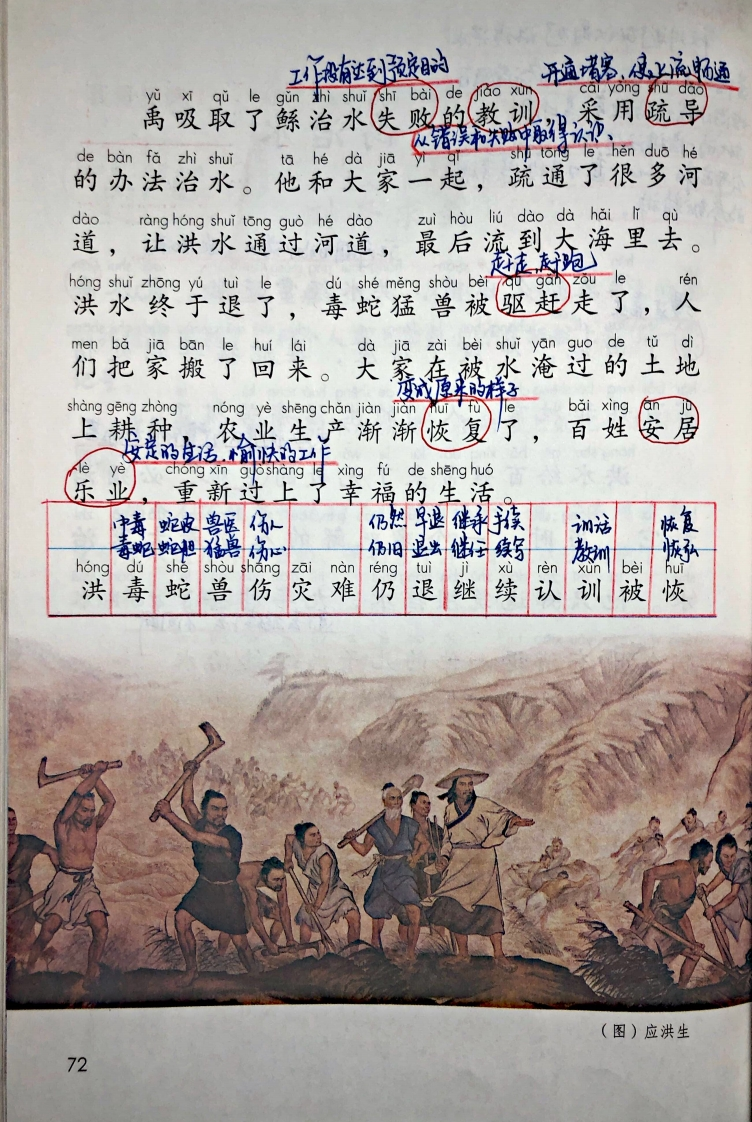 工作没有达到预定目的 开通堵塞，使上流畅通
yǔ xī qǔ le gǔn zhì shuǐ shī bài de jiào xùn cǎi yòng shū dǎo
禹吸取了鲧治水失败的教训，采用疏导
从错误和失败中取得认识、
de bàn fǎ zhì shuǐ tā hé dà jiā yì qǐ shū tōng le hěn duō hé
的办法治水。他和大家一起，疏通了很多河
dào ràng hóng shuǐ tōng guò hé dào zuì hòu liú dào dà hǎi lǐ qù
道，让洪水通过河道，最后流到大海里去。
赶走，赶跑
hóng shuǐ zhōng yú tuì le dú shé měng shòu bèi qū gǎn zǒu le rén
洪水终于退了，毒蛇猛兽被驱赶走了，人
men bǎ jiā bān le huí lái dà jiā zài bèi shuǐ yān guo de tǔ dì
们把家搬了回来。大家在被水淹过的土地
变成原来的样子
shàng gēng zhòng nóng yè shēng chǎn jiàn jiàn huī fù le bǎi xìng ān jū
上耕种，农业生产渐渐恢复了，百姓安居
安定的生活，愉快的工作
lè yè chóng xīn guò shàng le xìng fú de shēng huó
乐业，重新过上了幸福的生活。
中毒 蛇皮 兽医 伤人 仍然 早退 继承 手续 训话 恢复
毒蛇 蛇胆 猛兽 伤心 仍旧 退出 继任 续写 教训 恢弘
hóng dú shé shòu shāng zāi nàn réng tuì jì xù rèn xùn bèi huī
洪毒蛇兽伤灾难仍退继续认训被恢
（图）应洪生
72